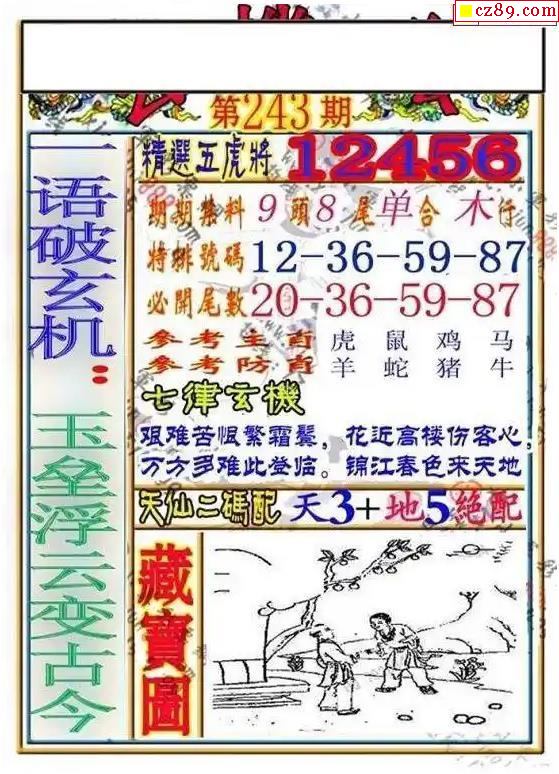 cz89.com
第243期
一语破玄机:
玉垒浮云变古今
精選五虎將 12456
期期禁料 9頭8尾单合 木行
特排號碼 12-36-59-87
必開尾數 20-36-59-87
参考主肖 虎 鼠 鸡 马
参考防肖 羊 蛇 猪 牛
七律玄機
艰难苦恨繁霜鬓，花近高楼伤客心，
万方多难此登临。锦江春色来天地
天仙二碼配 天3+地5絕配
藏寶圖